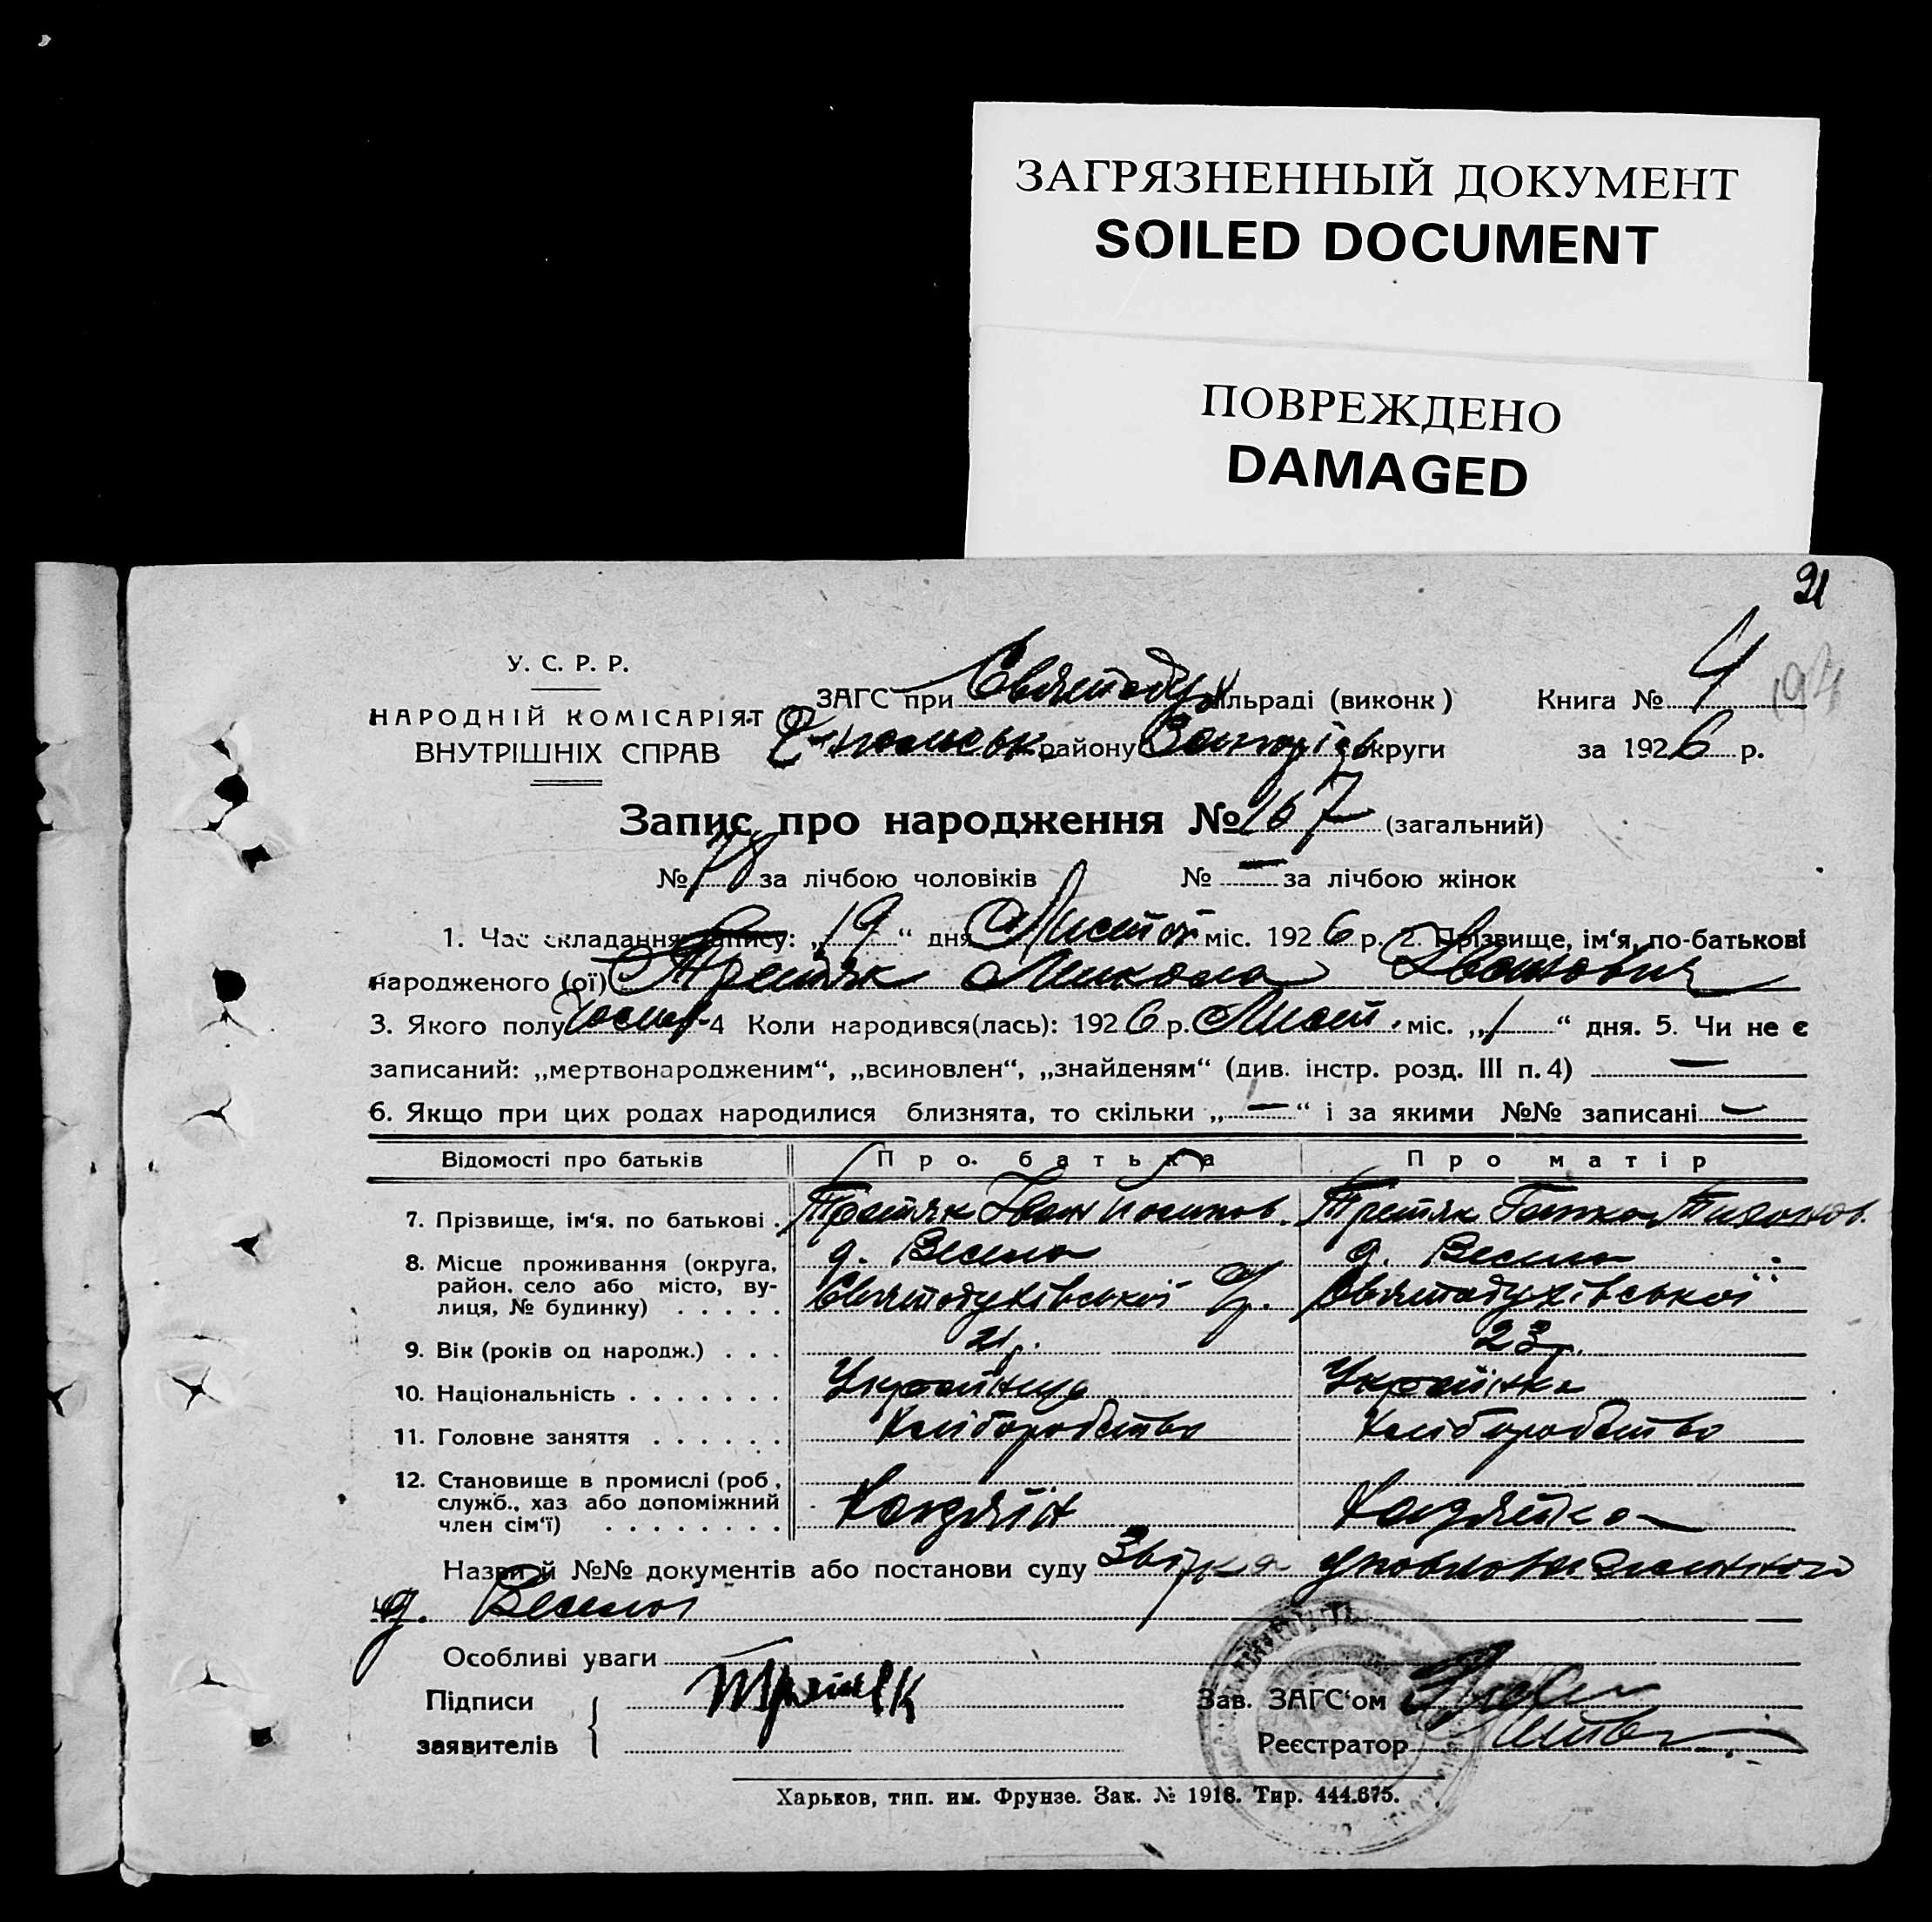 ЗАГРЯЗНЕННЫЙ ДОКУМЕНТ
SOILED DOCUMENT
ПОВРЕЖДЕНО
DAMAGED
У. С. Р. Р.
НАРОДНІЙ КОМІСАРІЯТ
ВНУТРІШНІХ СПРАВ
ЗАГС при Святодух ільраді (виконк)
району округи
Книга № 4
194
за 1926 р.
Запис про народження № 167 (загальний)
№ 78 за лічбою чоловіків № — за лічбою жінок
1. Час складання запису: „19“ дня Листоп міс. 1926 р. 2. Прізвище, ім‘я, по-батькові
народженого (ої) Третяк Микола Іванович
3. Якого полу чолов. 4 Коли народився(лась): 1926 р. Лист. міс. „1“ дня. 5. Чи не є
записаний: „мертвонародженим“, „всиновлен“, „знайденям“ (див. інстр. розд. III п. 4) —
6. Якщо при цих родах народилися близнята, то скільки „—“ і за якими №№ записані —
Відомості про батьків Про батька Про матір
7. Прізвище, ім‘я. по батькові . Третяк Іван Йосипов. Третяк Ганна Тихонов.
8. Місце проживання (округа, район. село або місто, вулиця, № будинку) . . . . .
д. Весела
Святодухівської с/р.
д. Весела
Святодухівської
9. Вік (років од народж.) . . . 21 р. 23 р.
10. Національність . . . . . . . Українец Українка
11. Головне заняття . . . . . . Хліборобство Хліборобство
12. Становище в промислі (роб, служб., хаз або допоміжний член сім‘ї) . . . . . . . .
Хазяїн Хазяйка
Назви й №№ документів або постанови суду Звізка уповноваженного
д. Веселої
Особливі уваги
Підписи
заявителів
Третяк
Зав. ЗАГС‘ом
Реєстратор
Харьков, тип. им. Фрунзе. Зак. № 1918. Тир. 444.675.